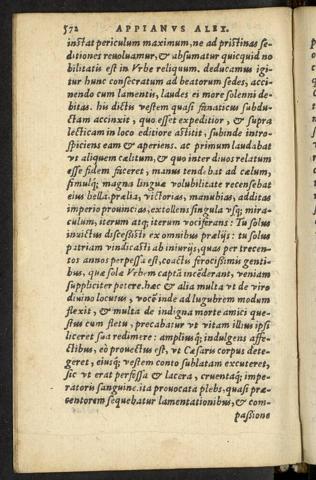 572 APPIANVS ALEX.
instat periculum maximum, ne ad pristinas se-
ditiones reuoluamur, & absumatur quicquid no
bilitatis est in Vrbe reliquum. deducamus igi
tur hunc consecratum ad beatorum sedes, acci-
nendo cum lamentis, laudes ei more solenni de-
bitas. his dictis vestem quasi fanaticus subdu-
ctam accinxit, quo esset expeditior, & supra
lecticam in loco editiore astitit, subinde intro-
spiciens eam & aperiens. ac primum laudabat
vt aliquem cælitum, & quo inter diuos relatum
esse fidem faceret, manus tendebat ad cælum,
simulq; magna linguæ volubilitate recensebat
eius bella, prælia, victorias, manubias, additas
imperio prouincias, extollens singula vsq; mira-
culum, iterum atq; iterum vociferans: Tu solus
inuictus discessisti ex omnibus prælijs: tu solus
patriam vindicasti ab iniurijs, quas per trecen-
tos annos perpessa est, coactis ferocissimis genti-
bus, quæ solæ Vrbem captā incēderant, veniam
suppliciter petere. hæc & alia multa vt de viro
diuino locutus, vocē inde ad lugubrem modum
flexit, & multa de indigna morte amici que-
stus cum fletu, precabatur vt vitam illius ipsi
liceret sua redimere: ampliusq; indulgens affe-
ctibus, eò prouectus est, vt Cæsaris corpus dete-
geret, eiusq; vestem conto sublatam excuteret,
sic vt erat perfossa & lacera, cruentaq; impe-
ratoris sanguine. ita prouocata plebs, quasi præ-
centorem sequebatur lamentationibus, & com-
passione